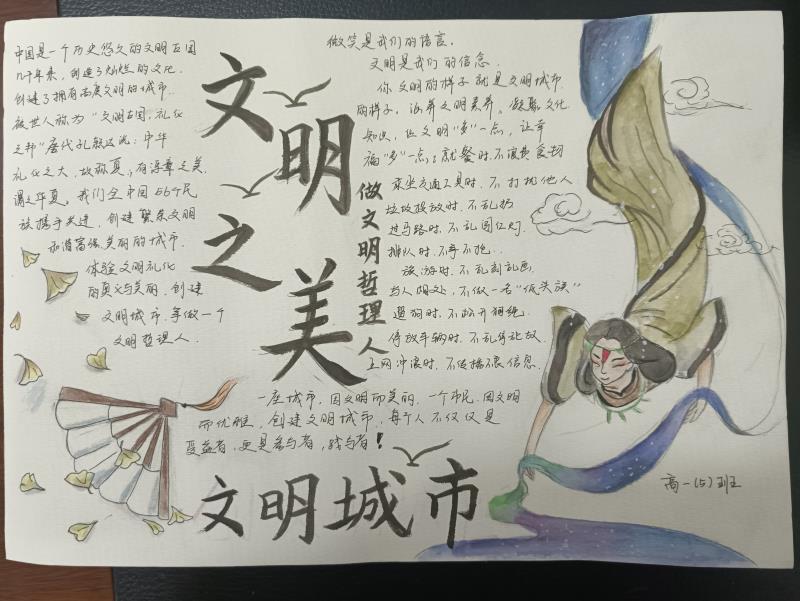 中国是一个历史悠久的文明古国
几千年来，创造了灿烂的文化.
创建了拥有高度文明的城市.
被世人称为“文明古国，礼仪
之邦”唐代孔颖达说：中华
礼仪之大，故称夏，有服章之美，
谓之华夏，我们全中国56个民
族携手共进，创建繁荣文明
和谐富强美丽的城市.
体验文明礼化
的真义与美丽，创建
文明城市，争做一个
文明哲理人.
文明之美
做文明哲理人
微笑是我们的语言.
文明是我们的信念.
你文明的样子就是文明城市
的样子，涵养文明素养.凝聚文化
知识，让文明“多”一点，让幸
福“多”一点；就餐时.不浪费食物
乘坐交通工具时.不打扰他人
垃圾投放时.不乱扔
过马路时.不乱闯红灯.
排队时.不争不抢..
旅游时.不乱刻乱画.
与人相处，不做一名“低头族”
遛狗时.不松开绳.
停放车辆时.不乱停让放.
上网冲浪时.不传播不良信息.
一座城市，因文明而美丽，一个市民，因文明
而优雅，创建文明城市，每个人不仅仅是
受益者，更是参与者，践与者！
文明城市
高一（5）班